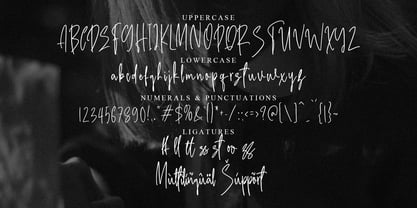 UPPERCASE
ABCDEFGHIJKLMNOPQRSTUVWXYZ
LOWERCASE
abcdefghijklmnopqrstuvwxyz
NUMERALS & PUNCTUATIONS
1234567890!."#$%&'()*+-/:;<=>?@[\]^_`{|}~
LIGATURES
ll tt ss st oo
Multilingüàl Šúppört